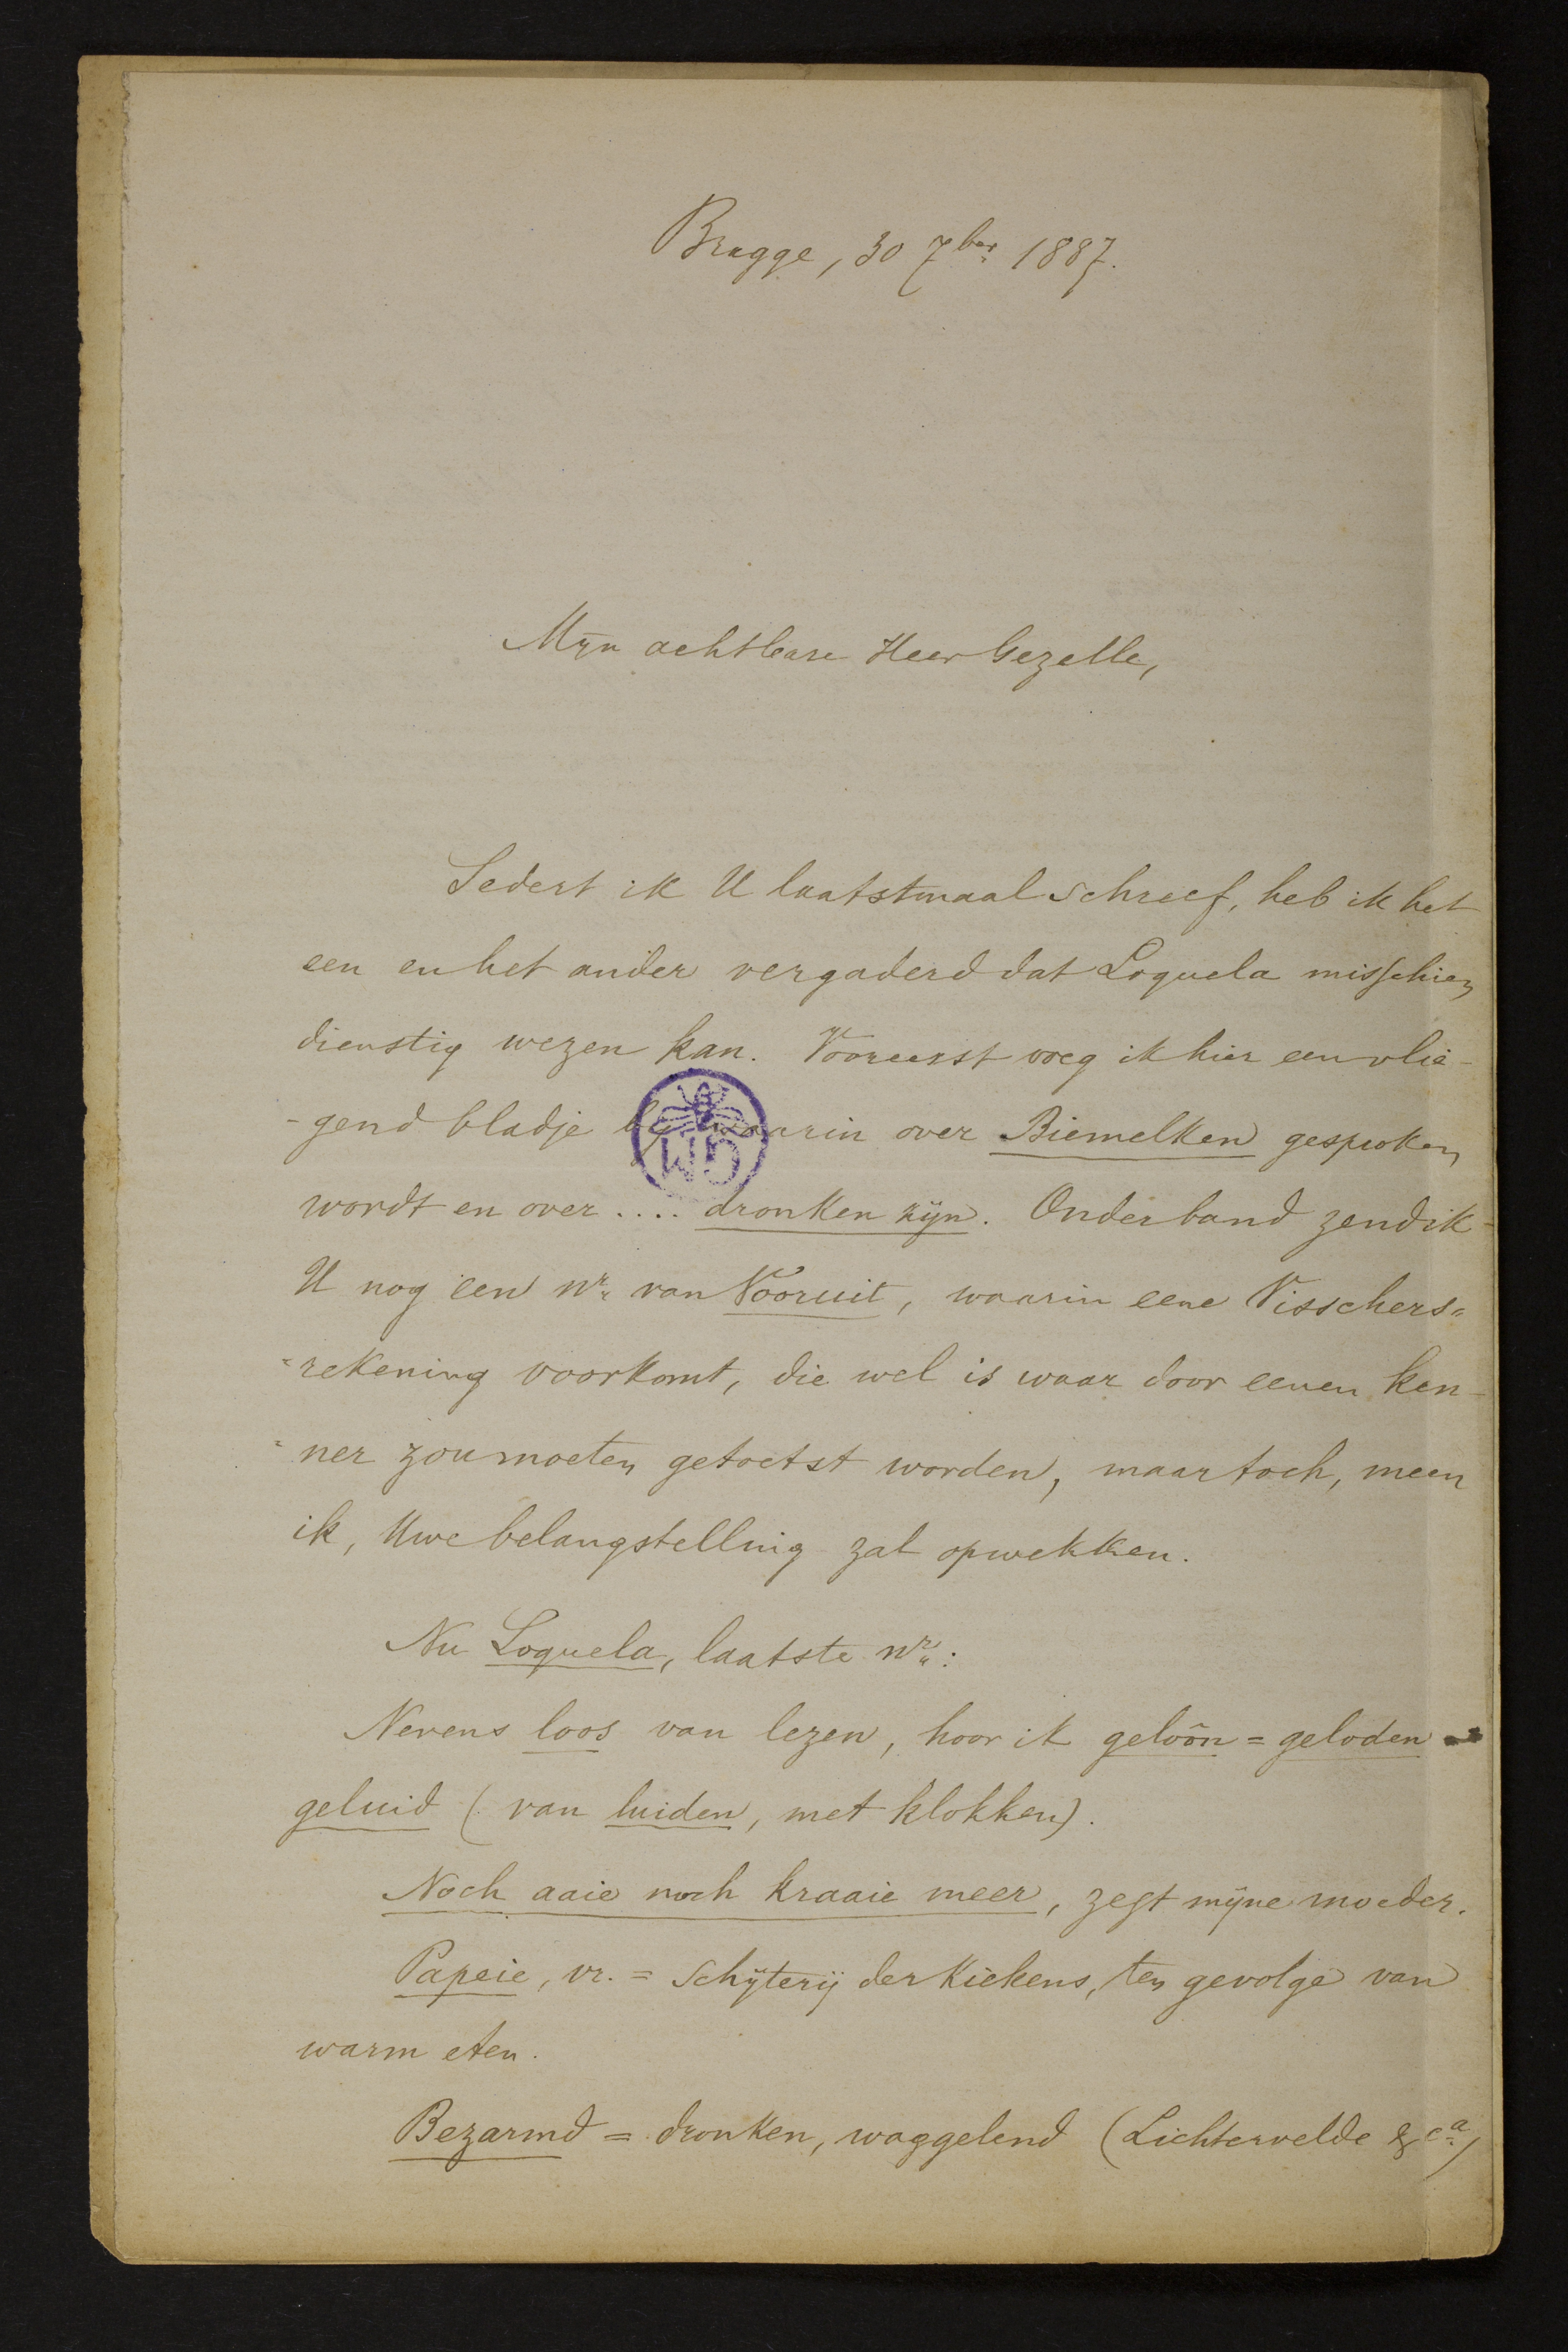 Brugge, 30 7ber 1887.
Mijn achtbare Heer Gezelle,
Sedert ik U laatstmaal schreef, heb ik het
een en het ander vergaderd dat Loquela misschien
dienstig wezen kan. Vooreerst voeg ik hier een vlie-
-gend bladje by waarin over Biemelken gesproken
wordt en over .... dronken zijn. Onder band zend ik
U nog een nr van Vooruit, waarin eene Visschers=
=rekening voorkomt, die wel is waar door eenen ken-
=ner zou moeten getoetst worden, maar toch, meen
ik, Uwe belangstelling zal opwekken.
Nu Loquela, laatste nr:
Nevens loos van lezen, hoor ik geloôn = geloden =
geluid (van luiden, met klokken).
Noch aaie noch kraaie meer, zegt mijne moeder.
Papeie, vr. = schijterij der kiekens, ten gevolge van
warm eten.
Bezarmd = dronken, waggelend (Lichtervelde &ca)